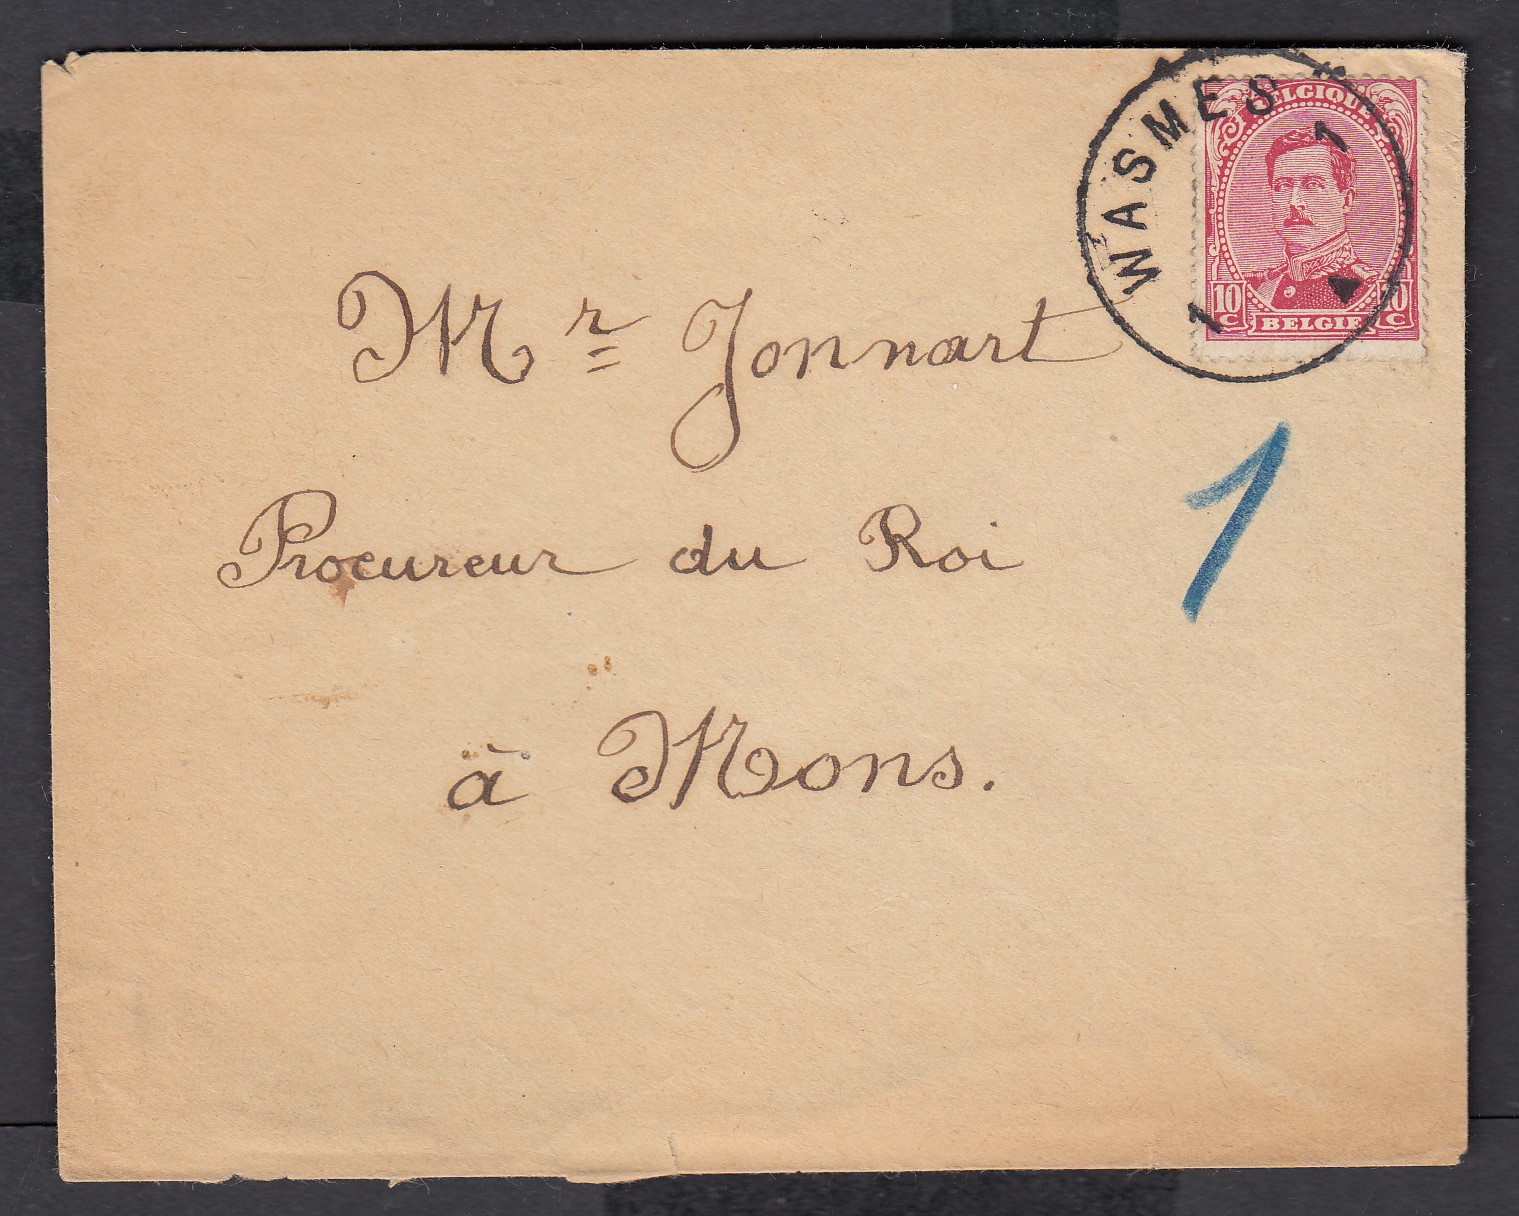 WASMES
1 1
BELGIQUE
10 C 10 C
BELGIE
Mr Jonnart
1
Procureur du Roi
à Mons.